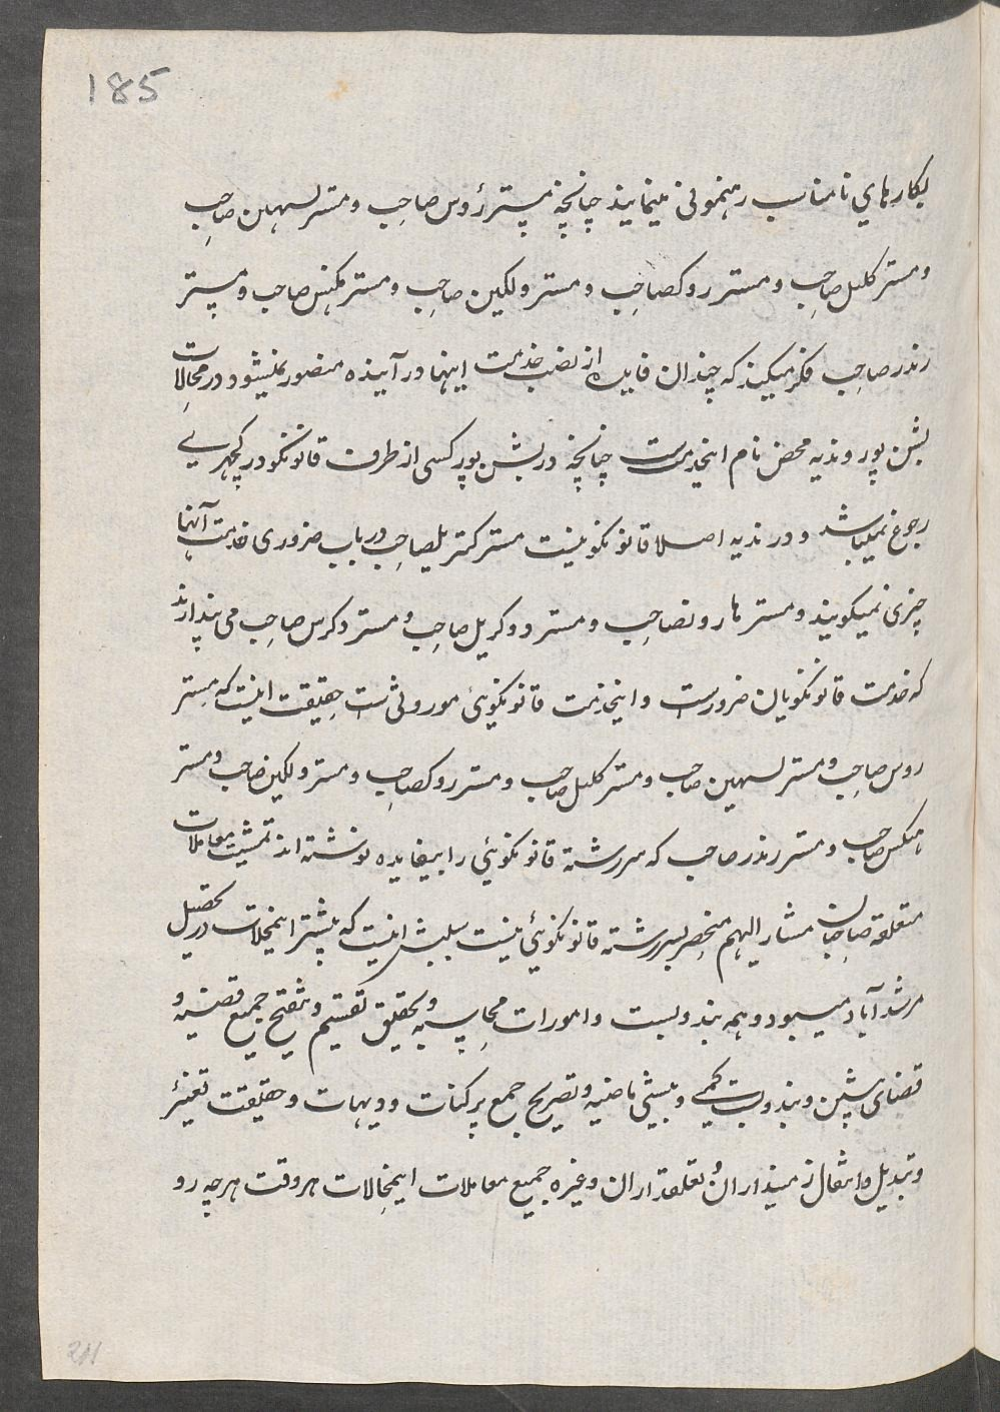 185
بکارهای نامناسب رهنمونی مینمایند چنانچه مستر رؤس صاحب و مستر لسهین صاحب
و مستر کلبل صاحب و مستر روکصاحب و مستر ولکین صاحب و مستر هکنس صاحب و مستر
رندر صاحب فکر میکنند که چندان فایده از نصب خدمت اینها در آینده متصور نمیشود در محالات
بشن پور و ندیه محض نام اینخدمت است چنانچه در بشن پور کسی از طرف قانونگو در کچهریے
رجوع نمیباشد و در ندیه اصلا قانونگو نیست مستر کتریلصاحب در باب ضروری خدمت آنها
چیزی نمیگویند و مستر هارونصاحب و مستر دوکریل صاحب و مستر دکرس صاحب می پندارند
که خدمت قانونگویان ضرورست و اینخدمت قانونگوئی موروثی ست حقیقت اینست که مستر
روس صاحب و مستر لسهین صاحب و مستر کلبل صاحب و مستر روکصاحب و مستر ولکین صاحب و مستر
هکنس صاحب و مستر رندر صاحب که سررشته قانونگوئی را بیفایده نوشته اند تمشیت معاملات
متعلقه صاحبان مشار الیهم منحصر بسررشته قانونگوئی نیست سببش اینست که پیشتر اینمحالات در تحصیل
مرشدآباد میبود و همه بندوبست و امورات محاسبه و تحقیق تقسیم و تنقیح جمیع قضیه و
قضای پیشین و بندوبست کمی و بیشی ماضیه و تصریح جمع پرکنات و دیهات و حقیقت تغیر
و تبدیل و انتقال زمینداران و تعلقداران و غیره جمیع معاملات اینمحالات هر وقت هر چه رو
211